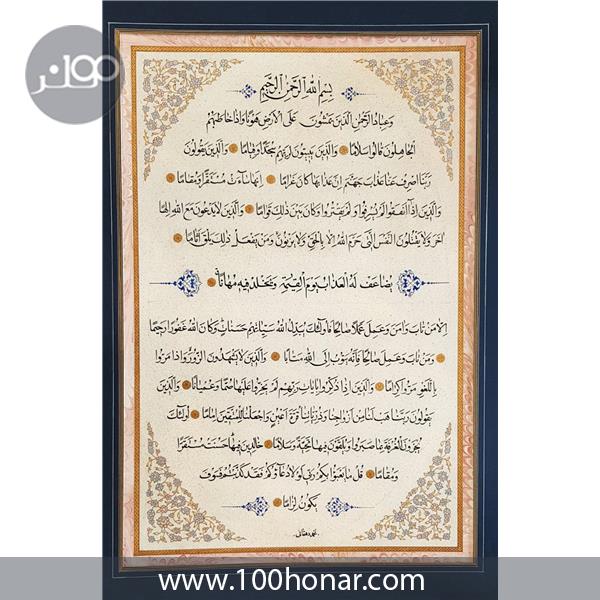 بسم الله الرحمن الرحيم
وعباد الرحمن الذين يمشون على الأرض هونا وإذا خاطبهم
الجاهلون قالوا سلاما والذين يبيتون لربهم سجدا وقياما والذين يقولون
ربنا اصرف عنا عذاب جهنم إن عذابها كان غراما إنها ساءت مستقرا ومقاما
والذين إذا أنفقوا لم يسرفوا ولم يقتروا وكان بين ذلك قواما والذين لا يدعون مع الله إلها
آخر ولا يقتلون النفس التي حرم الله إلا بالحق ولا يزنون ومن يفعل ذلك يلق أثاما
يضاعف له العذاب يوم القيمة ويخلد فيه مهانا
إلا من تاب وآمن وعمل عملا صالحا فأولئك يبدل الله سيئاتهم حسنات وكان الله غفورا رحيما
ومن تاب وعمل صالحا فإنه يتوب إلى الله متابا والذين لا يشهدون الزور وإذا مروا
باللغو مروا كراما والذين إذا ذكروا بآيات ربهم لم يخروا عليها صما وعميانا والذين
يقولون ربنا هب لنا من أزواجنا وذرياتنا قرة أعين واجعلنا للمتقين إماما أولئك
يجزون الغرفة بما صبروا ويلقون فيها تحية وسلاما خالدين فيها حسنت مستقرا
ومقاما قل ما يعبؤا بكم ربي لولا دعاؤكم فقد كذبتم فسوف
يكون لزاما
www.100honar.com